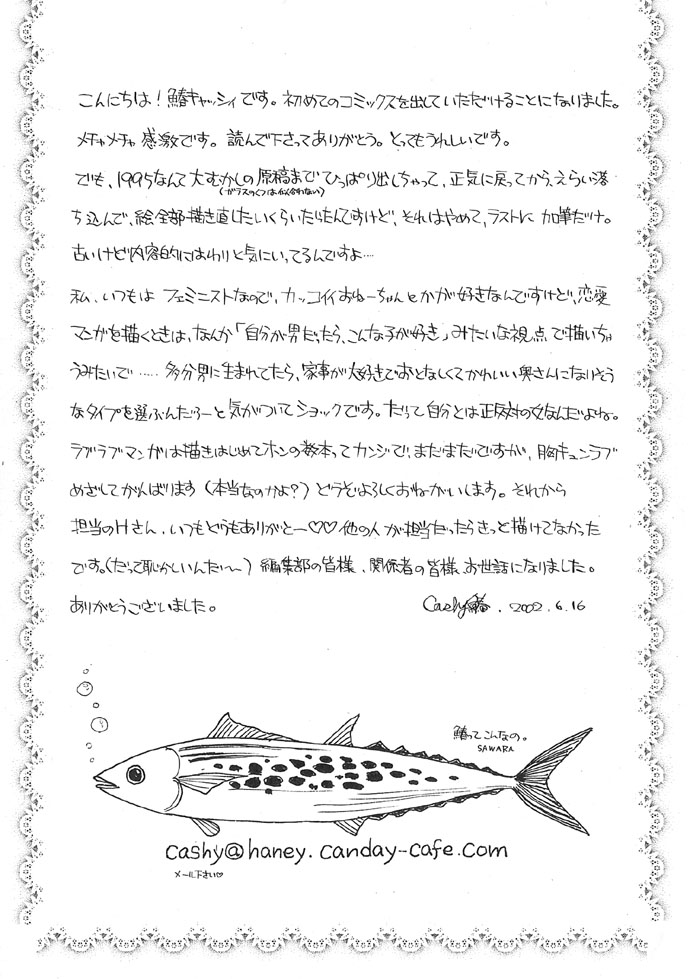 こんにちは！鰆キャッシィです。初めてのコミックスを出していただけることになりました。
メチャメチャ感激です。読んで下さってありがとう。とってもうれしいです。
でも、1995なんて大むかしの原稿までひっぱり出しちゃって、正気に戻ってから、えらい落
(ガラスのくつは似合わない)
ち込んで、絵全部描き直したいくらいだったんですけど、それはやめて、ラストに加筆だけ。
古いけど内容的にはわりと気にいってるんですよ…
私、いつもは フェミニストなので、カッコイイおねーちゃんとかが好きなんですけど、恋愛
マンガを描くときは、なんか「自分が男だったら、こんな子が好き」みたいな視点で描いちゃ
うみたいで……多分男に生まれてたら、家事が大好きでおとなしくてかわいい奥さんになりそう
なタイプを選ぶんだろーと気がついてショックです。だって自分とは正反対の女なんだよね。
ラブラブマンガは描きはじめてホンの数本ってカンジで、まだまだですが、胸キュンラブ
めざしてがんばります（本当なのかよ？）どうぞよろしくおねがいします。それから
担当のHさん、いつもどうもありがとー♡♡他の人が担当だったらきっと描けてなかった
です。(だって恥かしいんだ〜) 編集部の皆様、関係者の皆様、お世話になりました。
ありがとうございました。
Cashy鰆. 2002.6.16
鰆ってこんなの。
SAWARA
cashy@haney.canday-cafe.com
メール下さい♡